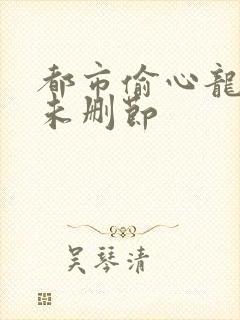 都市偷心龍
未删節
吴琴清